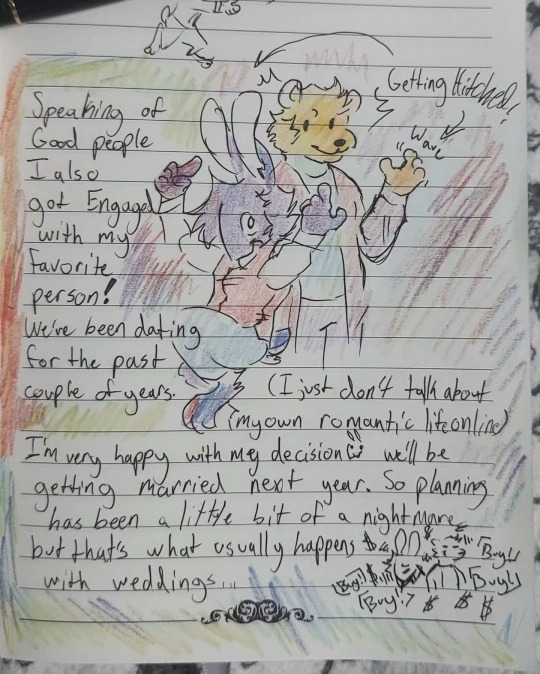 Getting Hitched!
Wave
Speaking of
Good people
I also
got Engaged
with my
favorite
person!
We've been dating
for the past
couple of years.
(I just don't talk about
my own romantic life online)
I'm very happy with my decision we'll be
getting married next year. So planning
has been a little bit of a nightmare
but that's what usually happens
with weddings...
$
[Buy!]
[Buy!] $ [Buy!]
[Buy!] $ $ $